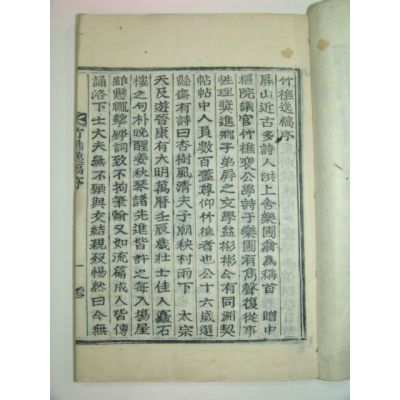 竹樵逸稿序
屏山近古多詩人洪上舍樂圃翁爲稱首 贈中
樞院議官竹樵裵公學詩于樂圃有雋聲復從事
性理獎進鄕子弟屏之文學益彬彬今有同淵契
帖帖中人員數百盡尊仰竹樵者也公十六歲選
縣齋有詩曰杏樹風清夫子廟秧村雨下 太宗
天及遊晉康有大明萬曆壬辰歲壯士佳人矗石
樓之句朴晩醒姜秋琴諸先進皆許之每入場屋
雖懸擊錚詞致不拘筆翰又如流篇成人皆傳
誦洛下士大夫無不願與交結親惕然曰今無
竹樵逸稿序
一